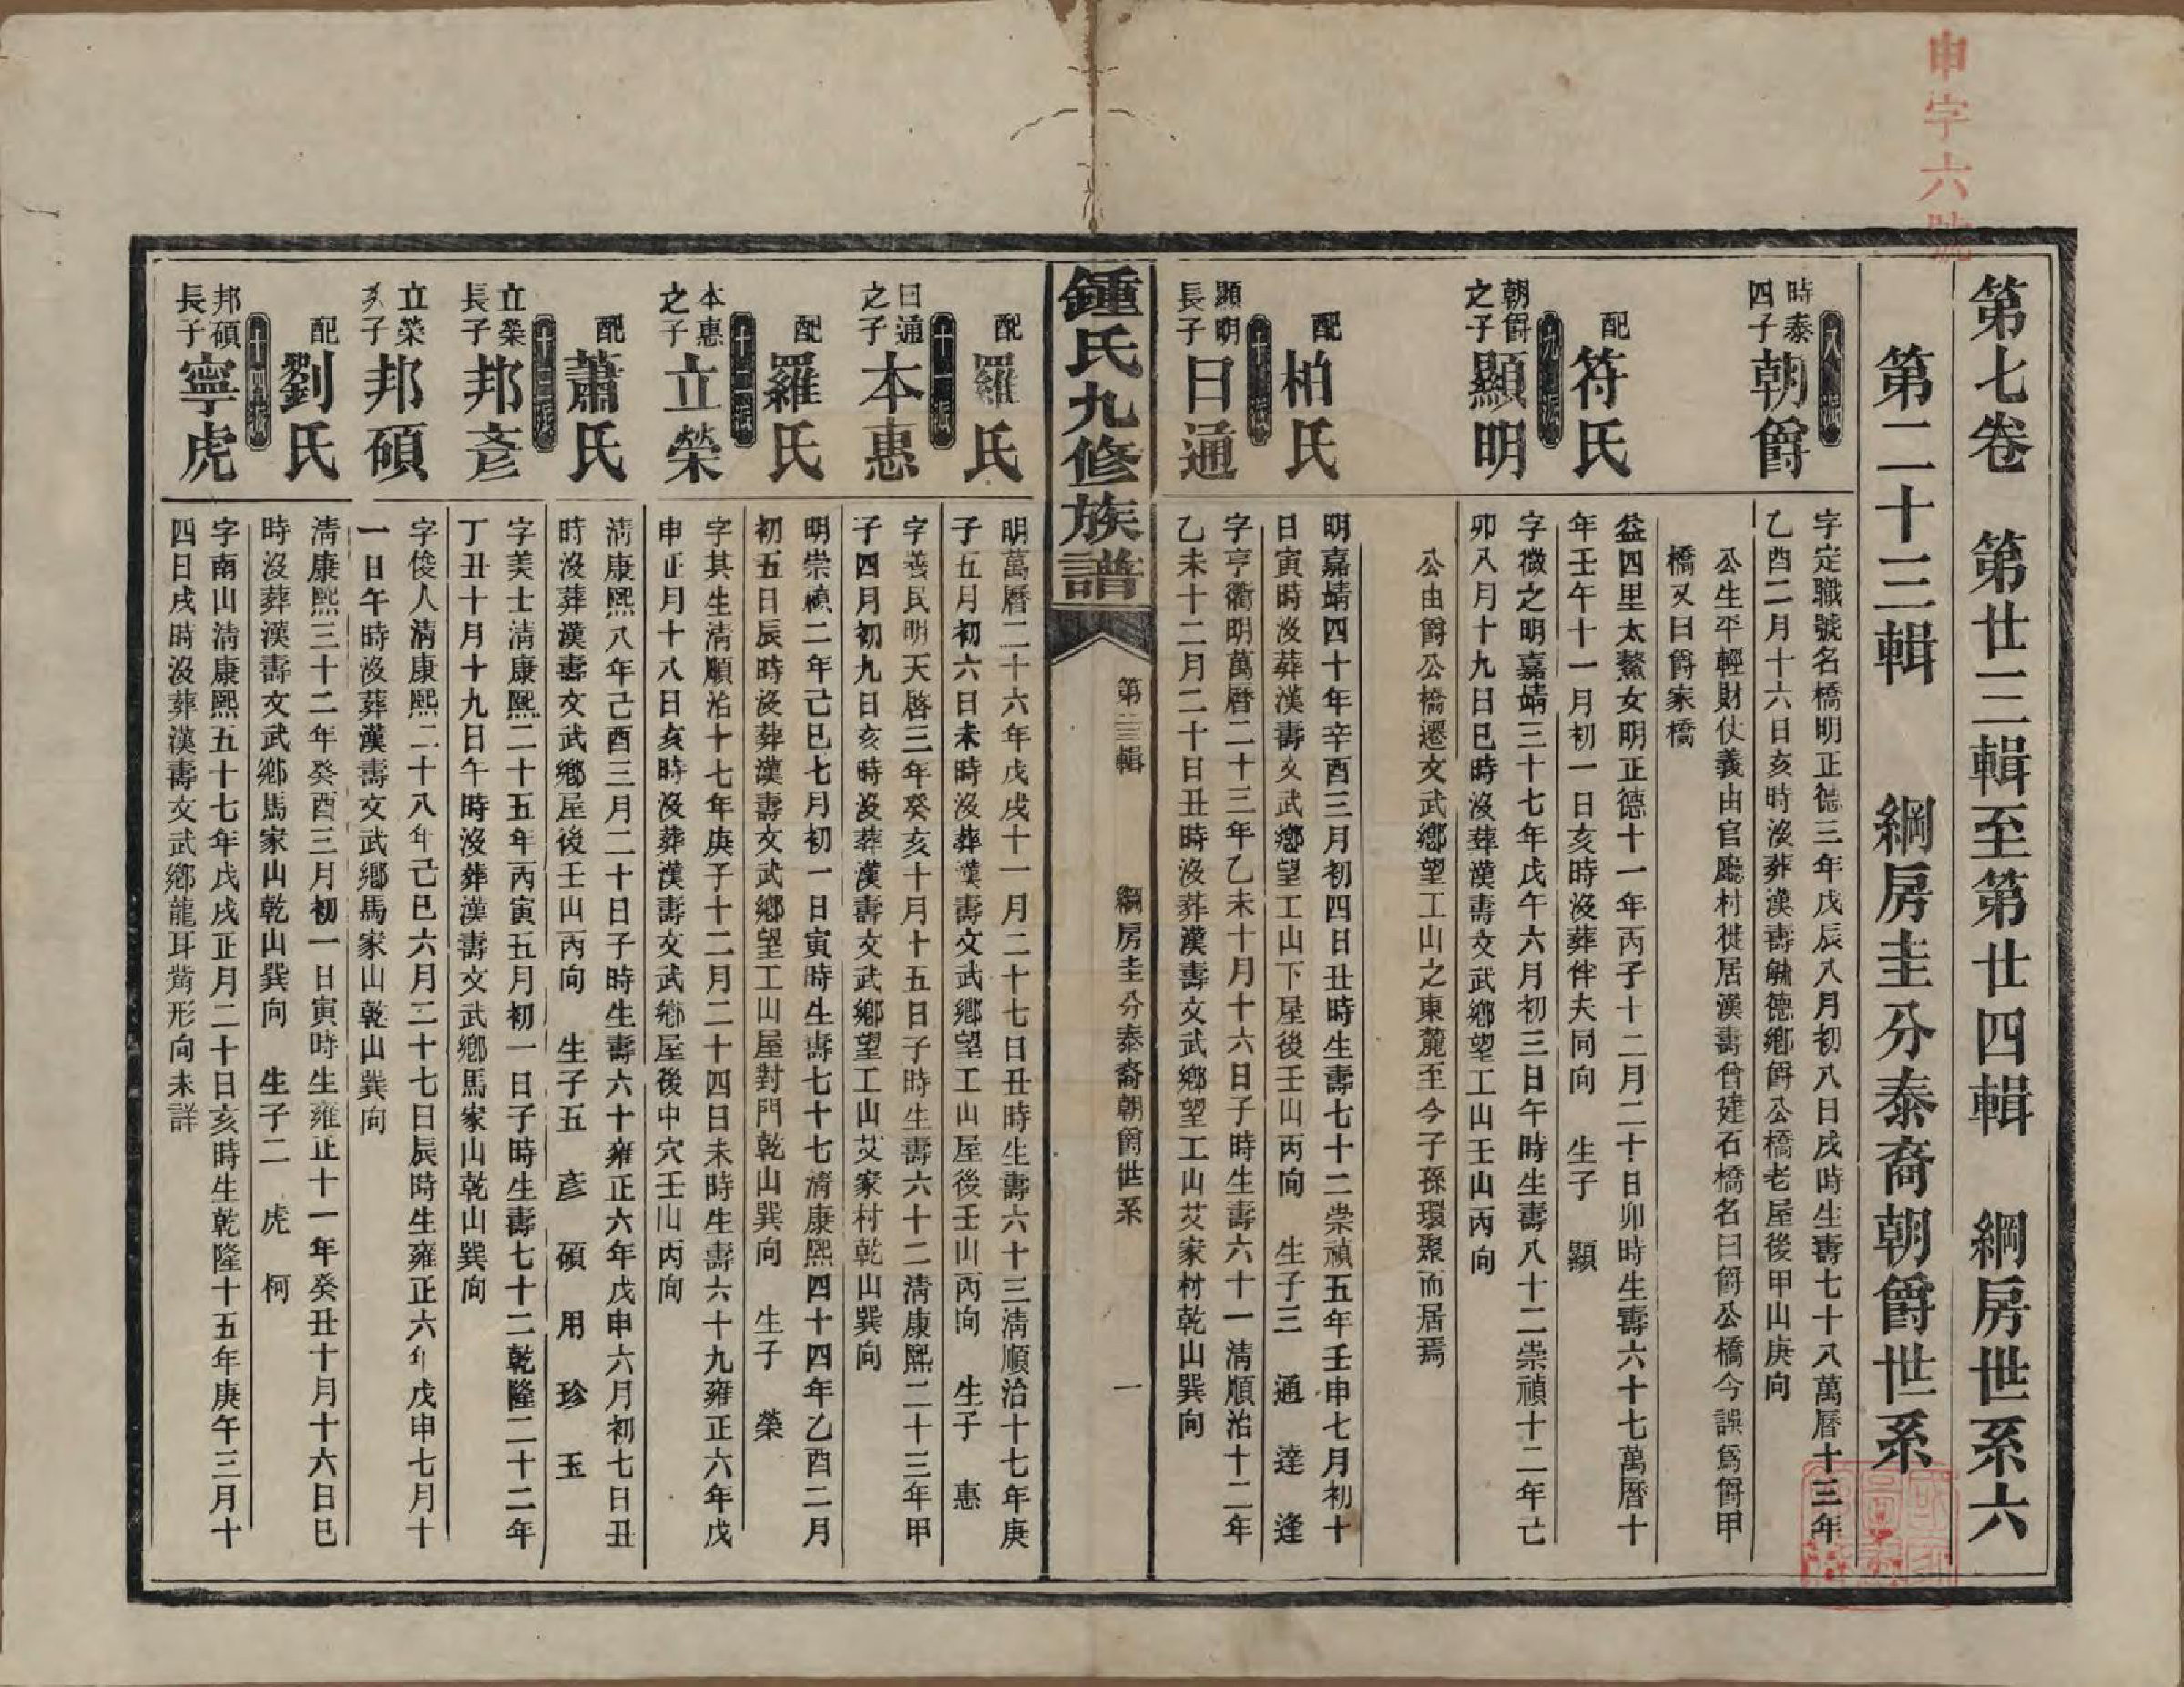 申字六號
第七卷　第廿三輯至第廿四輯　綱房世系六
第二十三輯　綱房圭分泰裔朝爵世系
八派
時泰
四子
朝爵
字定職號名橋明正德三年戊辰八月初八日戌時生壽七十八萬曆十三年
乙酉二月十六日亥時沒葬漢壽毓德鄉爵公橋老屋後甲山庚向
公生平輕財仗義由官廳村徙居漢壽曾建石橋名曰爵公橋今誤爲爵甲
橋又曰爵家橋
配
符氏
益四里太鰲女明正德十一年丙子十二月二十日卯時生壽六十七萬曆十
年壬午十一月初一日亥時沒葬伴夫同向　生子　顯
九派
朝爵
之子
顯明
字徵之明嘉靖三十七年戊午六月初三日午時生壽八十二崇禎十二年己
卯八月十九日巳時沒葬漢壽文武鄉望工山壬山丙向
公由爵公橋遷文武鄉望工山之東麓至今子孫環聚而居焉
配
柏氏
明嘉靖四十年辛酉三月初四日丑時生壽七十二崇禎五年壬申七月初十
日寅時沒葬漢壽文武鄉望工山下屋後壬山丙向　生子三　通　達　逢
十派
顯明
長子
日通
字亨衢明萬曆二十三年乙未十月十六日子時生壽六十一淸順治十二年
乙未十二月二十日丑時沒葬漢壽文武鄉望工山艾家村乾山巽向
鍾氏九修族譜
第二十三輯
綱房圭分泰裔朝爵世系
一
配
羅氏
明萬曆二十六年戊戌十一月二十七日丑時生壽六十三淸順治十七年庚
子五月初六日未時沒葬漢壽文武鄉望工山屋後壬山丙向　生子　惠
十一派
日通
之子
本惠
字養民明天啓三年癸亥十月十五日子時生壽六十二淸康熙二十三年甲
子四月初九日亥時沒葬漢壽文武鄉望工山艾家村乾山巽向
配
羅氏
明崇禎二年己巳七月初一日寅時生壽七十七淸康熙四十四年乙酉二月
初五日辰時沒葬漢壽文武鄉望工山屋對門乾山巽向　生子　榮
十二派
本惠
之子
立榮
字其生淸順治十七年庚子十二月二十四日未時生壽六十九雍正六年戊
申正月十八日亥時沒葬漢壽文武鄉屋後中穴壬山丙向
配
蕭氏
淸康熙八年己酉三月二十日子時生壽六十雍正六年戊申六月初七日丑
時沒葬漢壽文武鄉屋後壬山丙向　生子五　彥　碩　用　珍　玉
十三派
立榮
長子
邦彥
字美士淸康熙二十五年丙寅五月初一日子時生壽七十二乾隆二十二年
丁丑十月十九日午時沒葬漢壽文武鄉馬家山乾山巽向
立榮
次子
邦碩
字俊人淸康熙二十八年己巳六月二十七日辰時生雍正六年戊申七月十
一日午時沒葬漢壽文武鄉馬家山乾山巽向
配
劉氏
淸康熙三十二年癸酉三月初一日寅時生雍正十一年癸丑十月十六日巳
時沒葬漢壽文武鄉馬家山乾山巽向　生子二　虎　柯
十四派
邦碩
長子
寧虎
字南山淸康熙五十七年戊戌正月二十日亥時生乾隆十五年庚午三月十
四日戌時沒葬漢壽文武鄉龍耳觜形向未詳